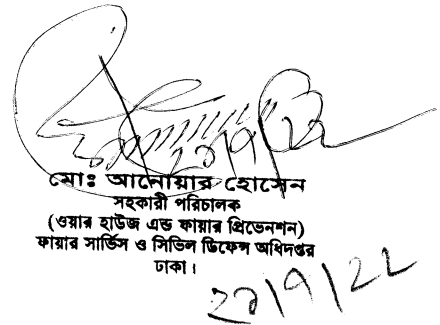 মোঃ আনোয়ার হোসেন
সহকারী পরিচালক
(ওয়ার হাউজ এন্ড ফায়ার প্রিভেনশন)
ফায়ার সার্ভিস ও সিভিল ডিফেন্স অধিদপ্তর
ঢাকা।
২৯/৭/২২